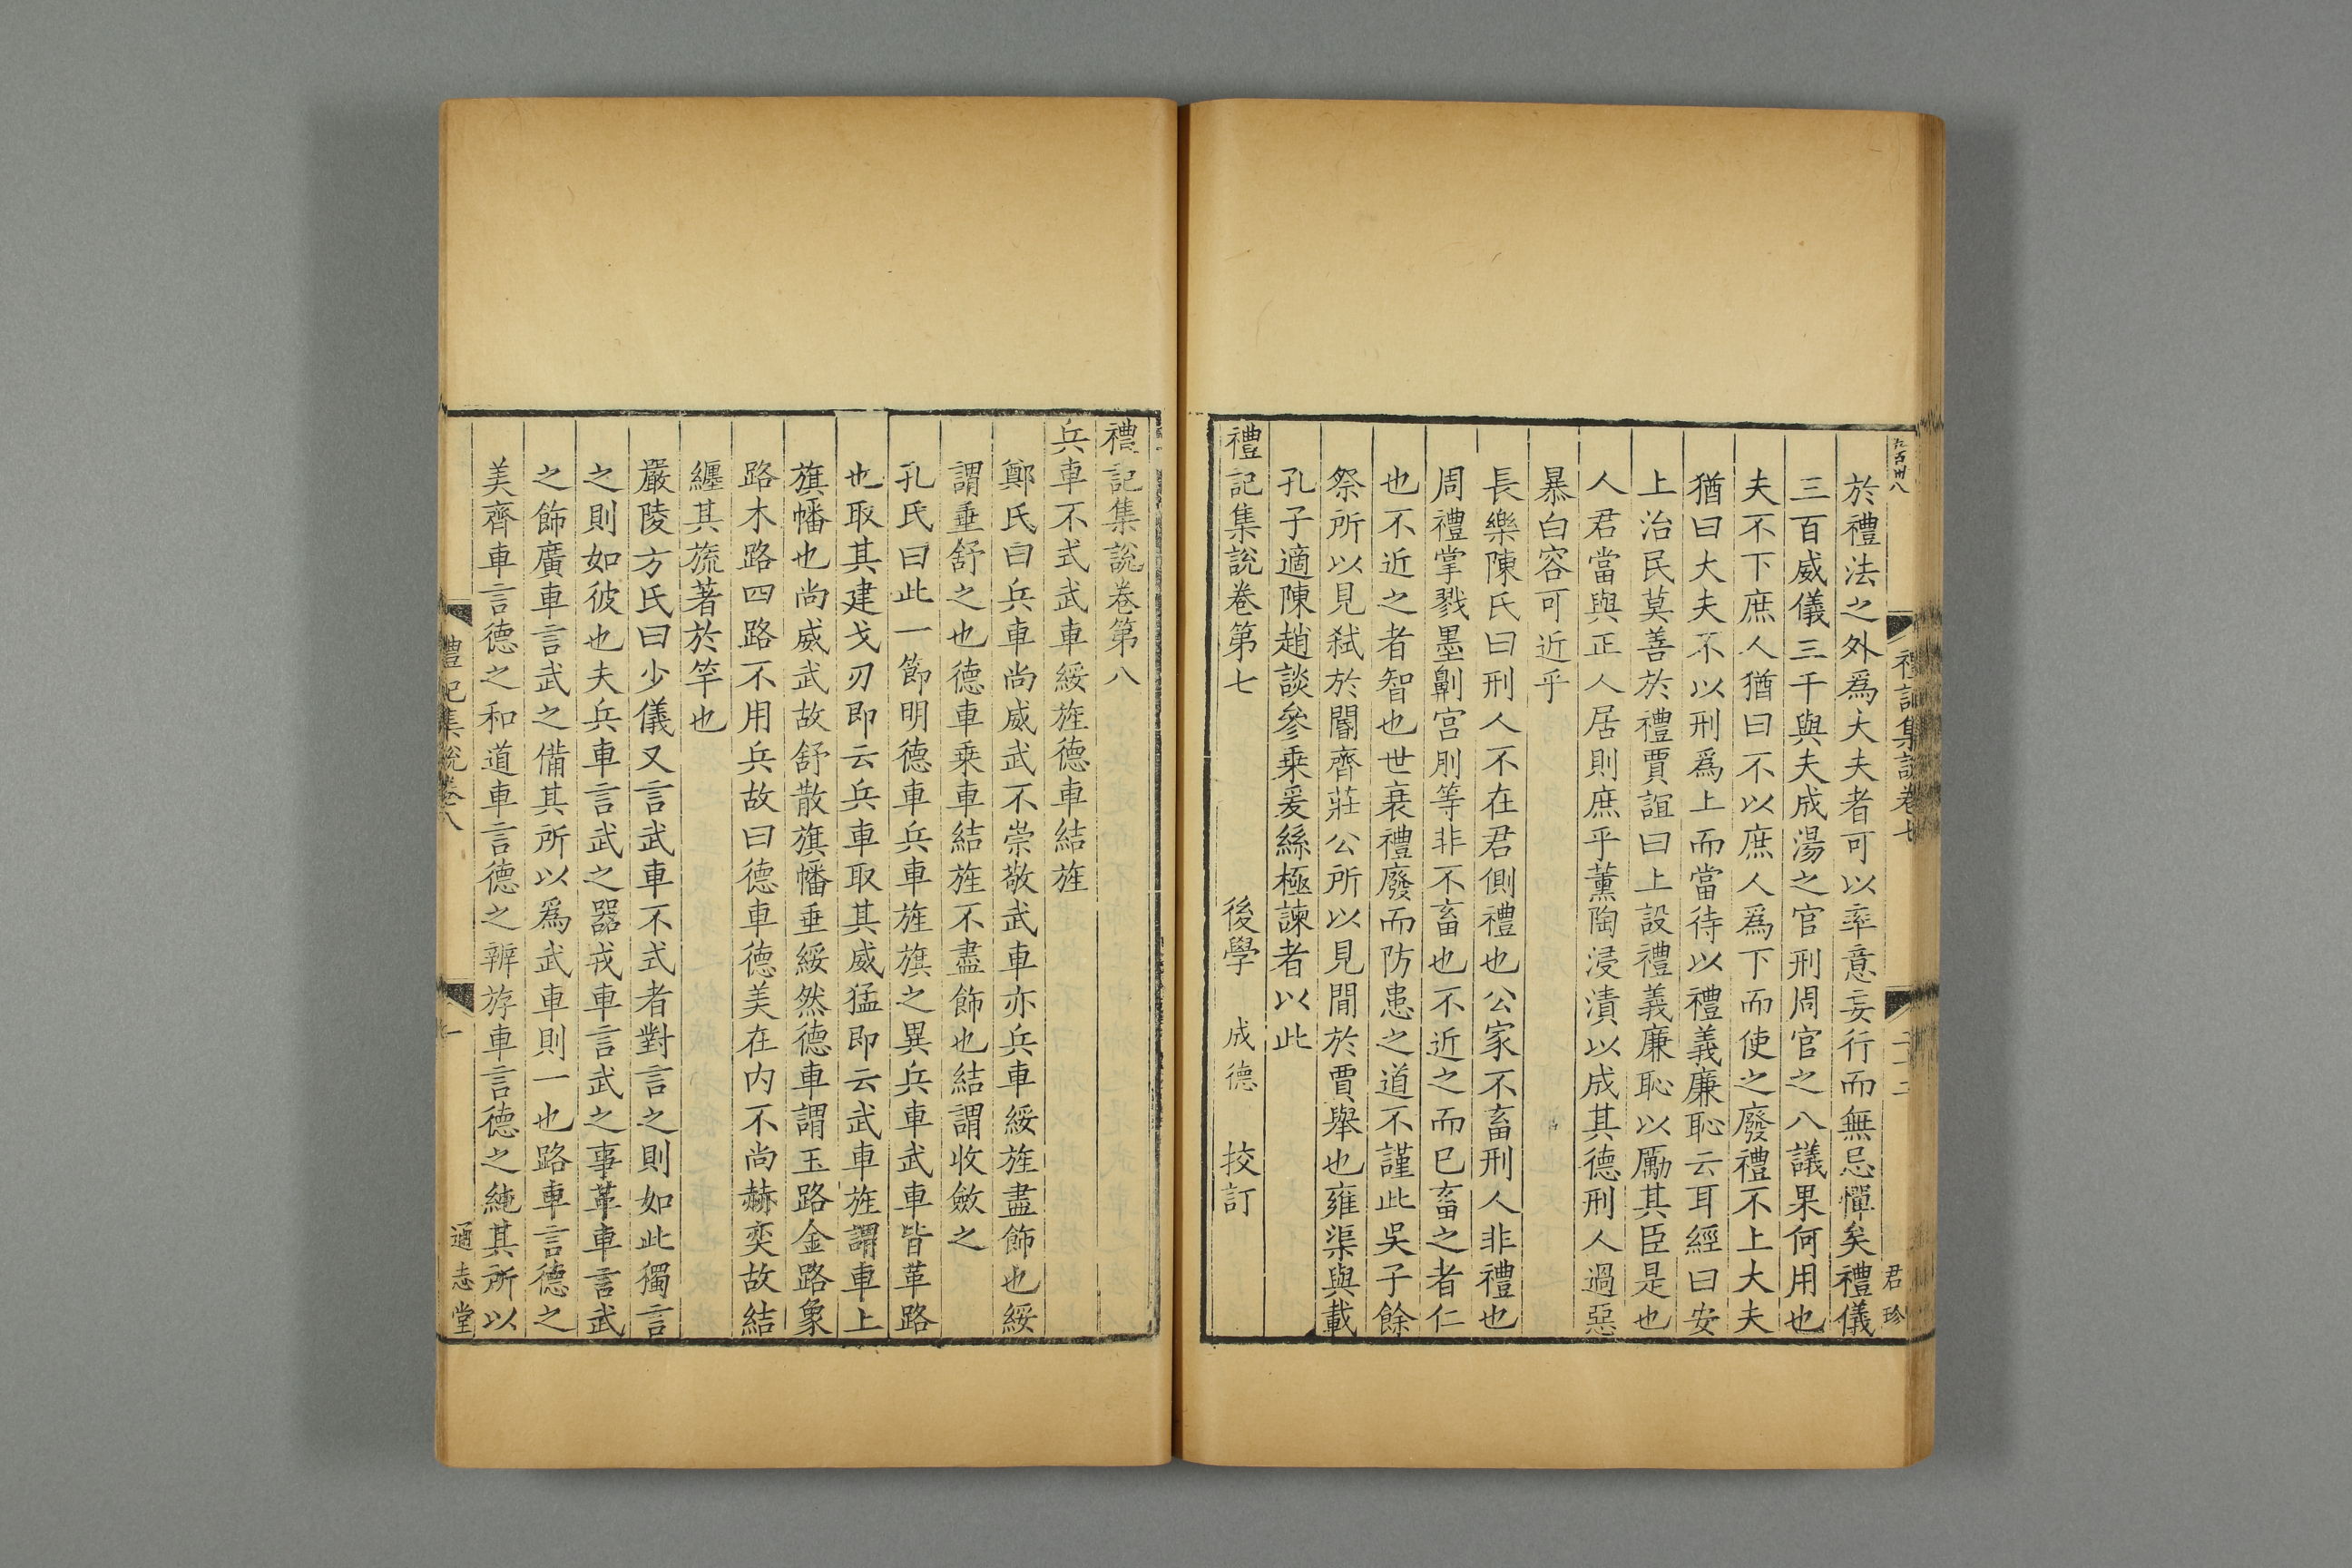 於禮法之外爲大夫者可以率意妄行而無忌憚矣禮儀
三百威儀三千與夫成湯之官刑周官之八議果何用也
夫不下庶人猶曰不以庶人爲下而使之廢禮不上大夫
猶曰大夫不以刑爲上而當待以禮義廉恥云耳經曰安
上治民莫善於禮賈誼曰上設禮義廉恥以厲其臣是也
人君當與正人居則庶乎薰陶浸漬以成其德刑人過惡
暴白容可近乎
長樂陳氏曰刑人不在君側禮也公家不畜刑人非禮也
周禮掌戮墨劓宮刖等非不畜也不近之而已畜之者仁
也不近之者智也世衰禮廢而防患之道不謹此吳子餘
祭所以見弑於閽齊莊公所以見閒於賈舉也雍渠與載
孔子適陳趙談參乗爰絲極諫者以此
禮記集説卷第七
後學 成德 挍訂
禮記集說卷七
二十二
君珍
禮記集說卷第八
兵車不式武車綏旌德車結旌
鄭氏曰兵車尚威武不崇敬武車亦兵車綏旌盡飾也綏
謂垂舒之也德車乗車結旌不盡飾也結謂收斂之
孔氏曰此一節明德車兵車旌旗之異兵車武車皆革路
也取其建戈刃即云兵車取其威猛即云武車旌謂車上
旗幡也尚威武故舒散旗幡垂綏然德車謂玉路金路象
路木路四路不用兵故曰德車德美在内不尚赫奕故結
纏其旒著於竿也
嚴陵方氏曰少儀又言武車不式者對言之則如此獨言
之則如彼也夫兵車言武之器戎車言武之事革車言武
之飾廣車言武之備其所以爲武車則一也路車言德之
美齊車言德之和道車言德之辨斿車言德之純其所以
禮記集說卷八
一
通志堂